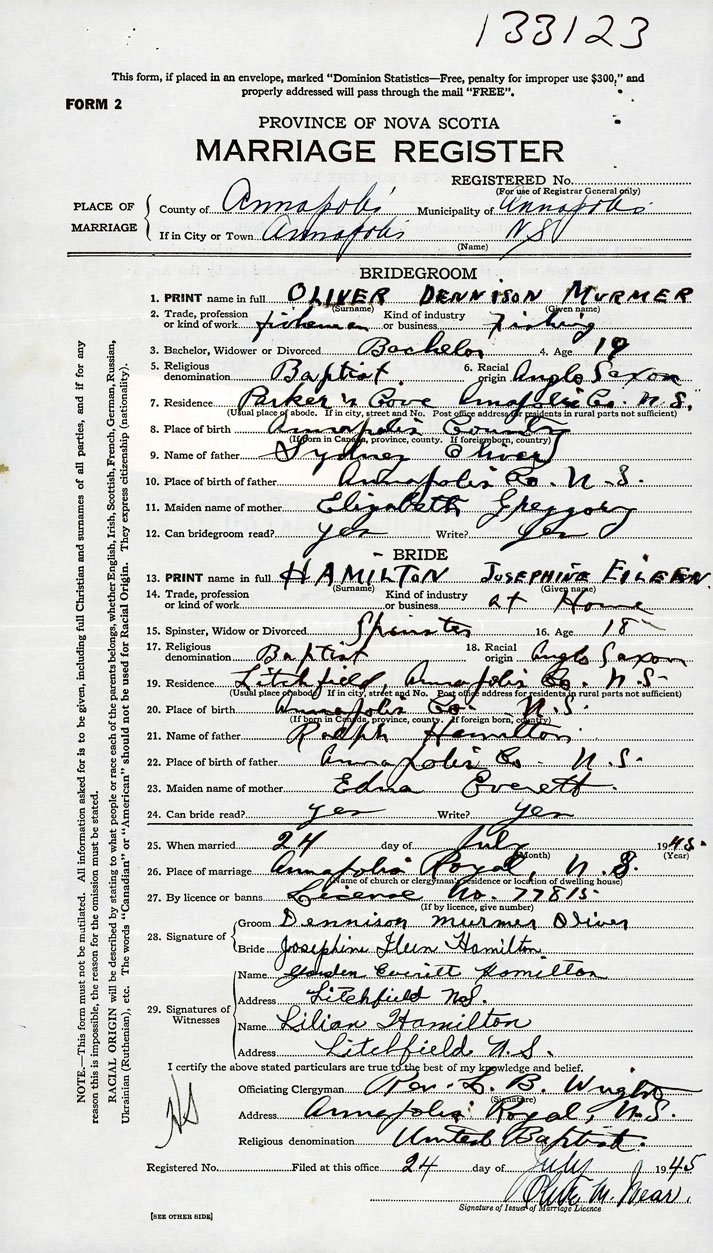 133123
This form, if placed in an envelope, marked "Dominion Statistics—Free, penalty for improper use $300," and
properly addressed will pass through the mail "FREE".
FORM 2
PROVINCE OF NOVA SCOTIA
MARRIAGE REGISTER
REGISTERED No.
(For use of Registrar General only)
PLACE OF MARRIAGE
County of Annapolis Municipality of Annapolis
If in City or Town Annapolis N S
(Name)
BRIDEGROOM
1. PRINT name in full OLIVER DENNISON MURMER
(Surname) (Given name)
2. Trade, profession or kind of work fisherman Kind of industry or business Fishing
3. Bachelor, Widower or Divorced Bachelor 4. Age 19
5. Religious denomination Baptist 6. Racial origin Anglo Saxon
7. Residence Parker's Cove Anapolis Co. N.S.
(Usual place of abode. If in city, street and No. Post office address of residents in rural parts not sufficient)
8. Place of birth Annapolis County
(If born in Canada, province, county. If foreign born, country)
9. Name of father Sydney Oliver
10. Place of birth of father Annapolis Co. N.S.
11. Maiden name of mother Elizabeth Greggory
12. Can bridegroom read? yes Write? Yes
BRIDE
13. PRINT name in full HAMILTON JOSEPHINE EILEEN
(Surname) (Given name)
14. Trade, profession or kind of work Kind of industry or business at Home
15. Spinster, Widow or Divorced Spinster 16. Age 18
17. Religious denomination Baptist 18. Racial origin Anglo Saxon
19. Residence Litchfield, Annapolis Co. N.S.
(Usual place of abode. If in city, street and No. Post office address for residents in rural parts not sufficient)
20. Place of birth Annapolis Co. N.S.
(If born in Canada, province, county. If foreign born, country)
21. Name of father Ralph Hamilton
22. Place of birth of father Annapolis Co. N.S.
23. Maiden name of mother Edna Everett
24. Can bride read? yes Write? yes
25. When married 24 day of July 1945.
(Month) (Year)
26. Place of marriage Annapolis Royal, N.S.
(Name of church or clergyman's residence or location of dwelling house)
27. By licence or banns License No. 77815
(If by licence, give number)
28. Signature of
Groom Dennison Murmer Oliver
Bride Josephine Ileen Hamilton
29. Signatures of Witnesses
Name Everitt Hamilton
Address Litchfield N.S.
Name Lilian Hamilton
Address Litchfield N.S.
I certify the above stated particulars are true to the best of my knowledge and belief.
Officiating Clergyman Rev. L. B. Wright
(Signature)
Address Annapolis Royal, N.S.
Religious denomination United Baptist.
Registered No. Filed at this office 24 day of July 1945
Signature of Issuer of Marriage Licence
[SEE OTHER SIDE]
NOTE.—This form must not be mutilated. All information asked for is to be given, including full Christian and surnames of all parties, and if for any
reason this is impossible, the reason for the omission must be stated.
RACIAL ORIGIN will be described by stating to what people or race each of the parents belongs, whether English, Irish, Scottish, French, German, Russian,
Ukrainian (Ruthenian), etc. The words "Canadian" or "American" should not be used for Racial Origin. They express citizenship (nationality).